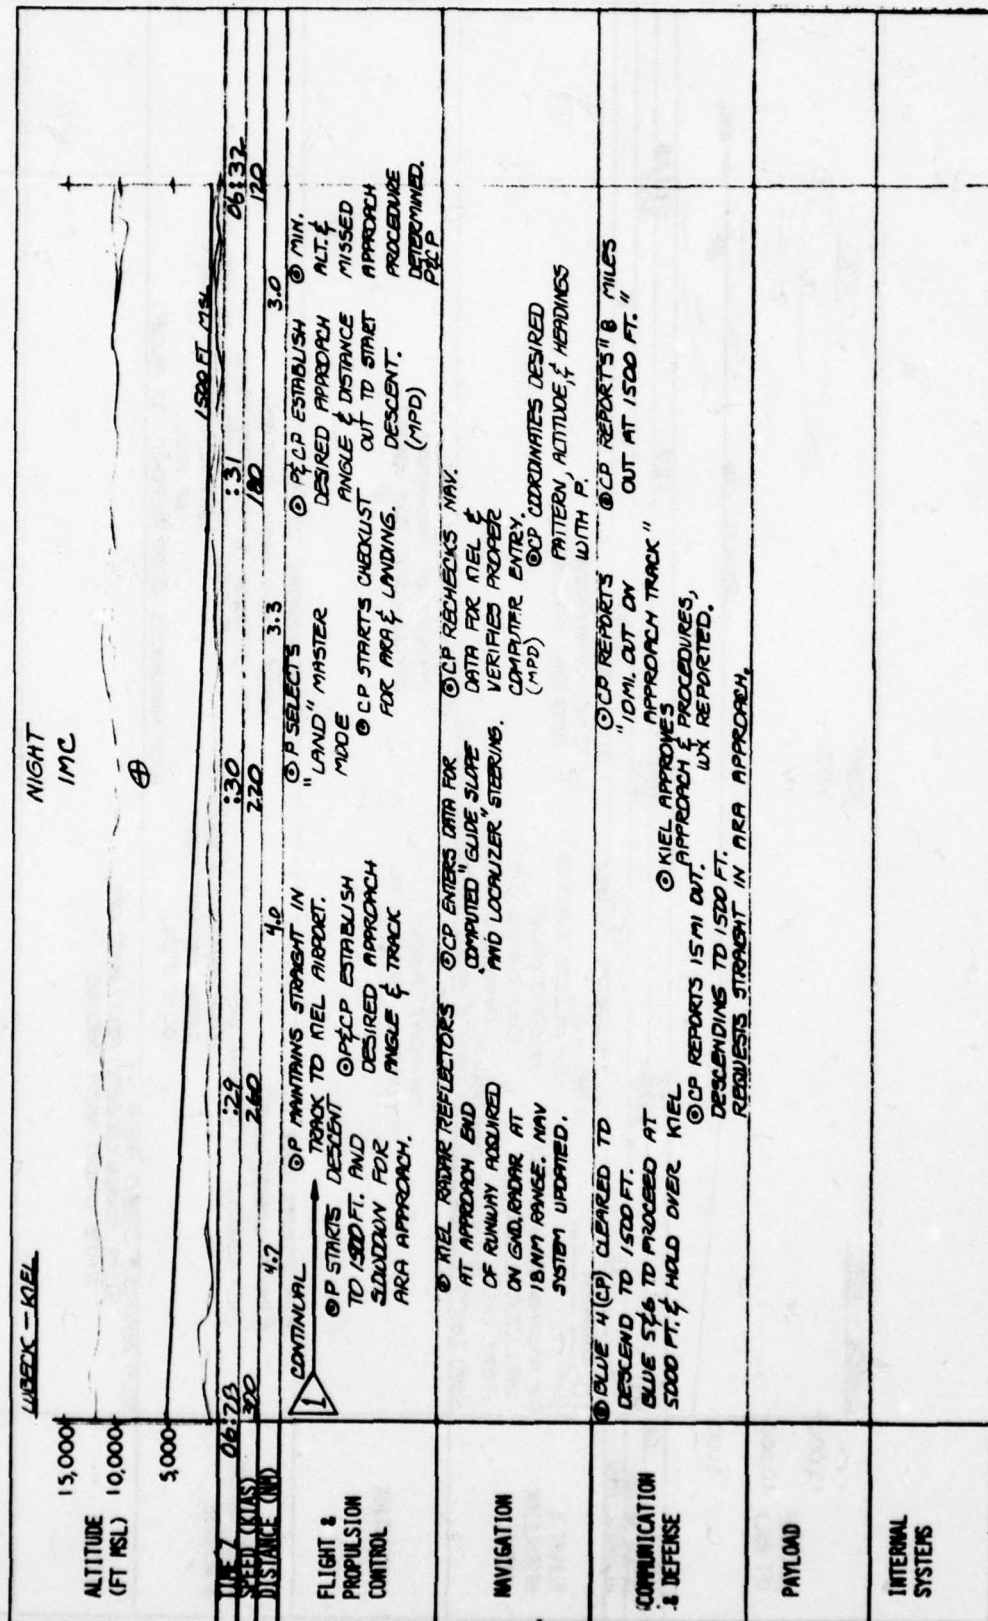 LUBECK – KIEL
NIGHT
IMC
ALTITUDE
(FT MSL)
15,000
10,000
5,000
1500 FT MSL
TIME Z
06:28
:29
:30
:31
06:32
SPEED (KIAS)
300
260
220
180
120
DISTANCE (NM)
4.7
4.0
3.3
3.0
FLIGHT &
PROPULSION
CONTROL
1
CONTINUAL
P STARTS DESCENT
TO 1500 FT. AND
SLOWDOWN FOR
ARA APPROACH.
P MAINTAINS STRAIGHT IN
TRACK TO KIEL AIRPORT.
P&CP ESTABLISH
DESIRED APPROACH
ANGLE & TRACK
P SELECTS
"LAND" MASTER
MODE
CP STARTS CHECKLIST
FOR ARA & LANDING.
P&CP ESTABLISH
DESIRED APPROACH
ANGLE & DISTANCE
OUT TO START
DESCENT.
(MPD)
MIN.
ALT. &
MISSED
APPROACH
PROCEDURE
DETERMINED.
P&CP
NAVIGATION
KIEL RADAR REFLECTORS
AT APPROACH END
OF RUNWAY AQUIRED
ON GND. RADAR AT
18 NM RANGE. NAV
SYSTEM UPDATED.
CP ENTERS DATA FOR
"COMPUTED" GLIDE SLOPE
AND LOCALIZER" STEERING.
CP RECHECKS NAV.
DATA FOR KIEL &
VERIFIES PROPER
COMPUTER ENTRY.
(MPD)
CP COORDINATES DESIRED
PATTERN, ALTITUDE, & HEADINGS
WITH P.
COMMUNICATION
& DEFENSE
BLUE 4 (CP) CLEARED TO
DESCEND TO 1500 FT.
BLUE 5&6 TO PROCEED AT
5000 FT. & HOLD OVER KIEL
CP REPORTS 15 MI OUT.
DESCENDING TO 1500 FT.
REQUESTS STRAIGHT IN ARA APPROACH.
KIEL APPROVES
APPROACH & PROCEDURES,
WX REPORTED.
CP REPORTS
"10 MI. OUT ON
APPROACH TRACK"
CP REPORTS "8 MILES
OUT AT 1500 FT."
PAYLOAD
INTERNAL
SYSTEMS